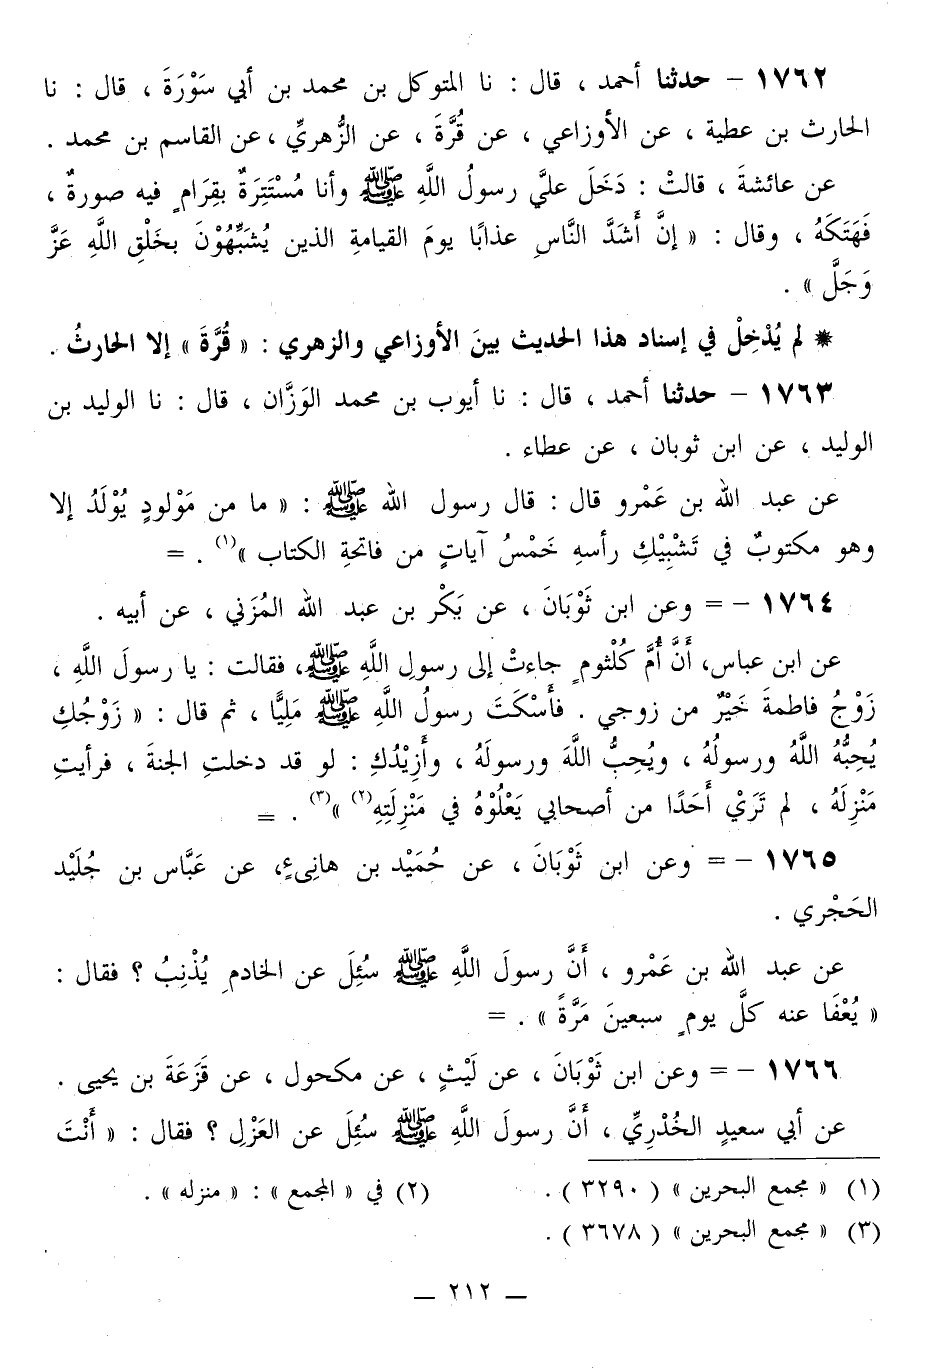 ١٧٦٢ – حدثنا أحمد ، قال : نا المتوكل بن محمد بن أبي سَوْرَةَ ، قال : نا
الحارث بن عطية ، عن الأوزاعي ، عن قُرَّةَ ، عن الزُّهريِّ ، عن القاسم بن محمد .
عن عائشةَ ، قالتْ : دَخَلَ عليَّ رسولُ اللَّهِ ﷺ وأنا مُسْتَتِرَةٌ بقِرَامٍ فيه صورةٌ ،
فَهَتَكَهُ ، وقال : « إنَّ أَشَدَّ النَّاسِ عذابًا يومَ القيامةِ الذين يُشَبِّهُوْنَ بخَلْقِ اللَّهِ عَزَّ
وَجَلَّ » .
* لم يُدْخِلْ في إسناد هذا الحديث بينَ الأوزاعي والزهري : « قُرَّةَ » إلا الحارثُ .
١٧٦٣ – حدثنا أحمد ، قال : نا أيوب بن محمد الوَزَّان ، قال : نا الوليد بن
الوليد ، عن ابن ثوبان ، عن عطاء .
عن عبد الله بن عَمْرو قال : قال رسول الله ﷺ : « ما من مَوْلودٍ يُوْلَدُ إلا
وهو مكتوبٌ في تَشْبِيْكِ رأسهِ خَمْسُ آياتٍ من فاتحةِ الكتاب »(١) . =
١٧٦٤ – = وعن ابن ثَوْبَانَ ، عن بَكْر بن عبد الله المُزَني ، عن أبيه .
عن ابن عباس، أَنَّ أُمَّ كُلْثومٍ جاءتْ إلى رسولِ اللَّهِ ﷺ، فقالت : يا رسولَ اللَّهِ ،
زَوْجُ فاطمةَ خَيْرٌ من زوجي . فأَسْكَتَ رسولُ اللَّهِ ﷺ مَلِيًّا ، ثم قال : « زَوْجُكِ
يُحِبُّهُ اللَّهُ ورسولُهُ ، ويُحِبُّ اللَّهَ ورسولَهُ ، وأَزِيْدُكِ : لو قد دخلتِ الجنةَ ، فرأيتِ
مَنْزِلَهُ ، لم تَرَيْ أَحَدًا من أصحابي يَعْلُوْهُ في مَنْزِلَتِهِ(٢) »(٣) . =
١٧٦٥ – = وعن ابن ثَوْبَانَ ، عن حُمَيْد بن هانِىءٍ، عن عَبَّاس بن جُلَيْد
الحَجْري .
عن عبد الله بن عَمْرو ، أَنَّ رسولَ اللَّهِ ﷺ سُئِلَ عن الخادمِ يُذْنِبُ ؟ فقال :
« يُعْفَا عنه كلَّ يومٍ سبعينَ مَرَّةً » . =
١٧٦٦ – = وعن ابن ثَوْبَانَ ، عن لَيْثٍ ، عن مكحول ، عن قَزَعَةَ بن يحيى .
عن أبي سعيدٍ الخُدْرِيِّ ، أَنَّ رسولَ اللَّهِ ﷺ سُئِلَ عن العَزْلِ ؟ فقال : « أَنْتَ
(١) « مجمع البحرين » ( ٣٢٩٠ ) . (٢) في « المجمع » : « منزله » .
(٣) « مجمع البحرين » ( ٣٦٧٨ ) .
— ٢١٢ —